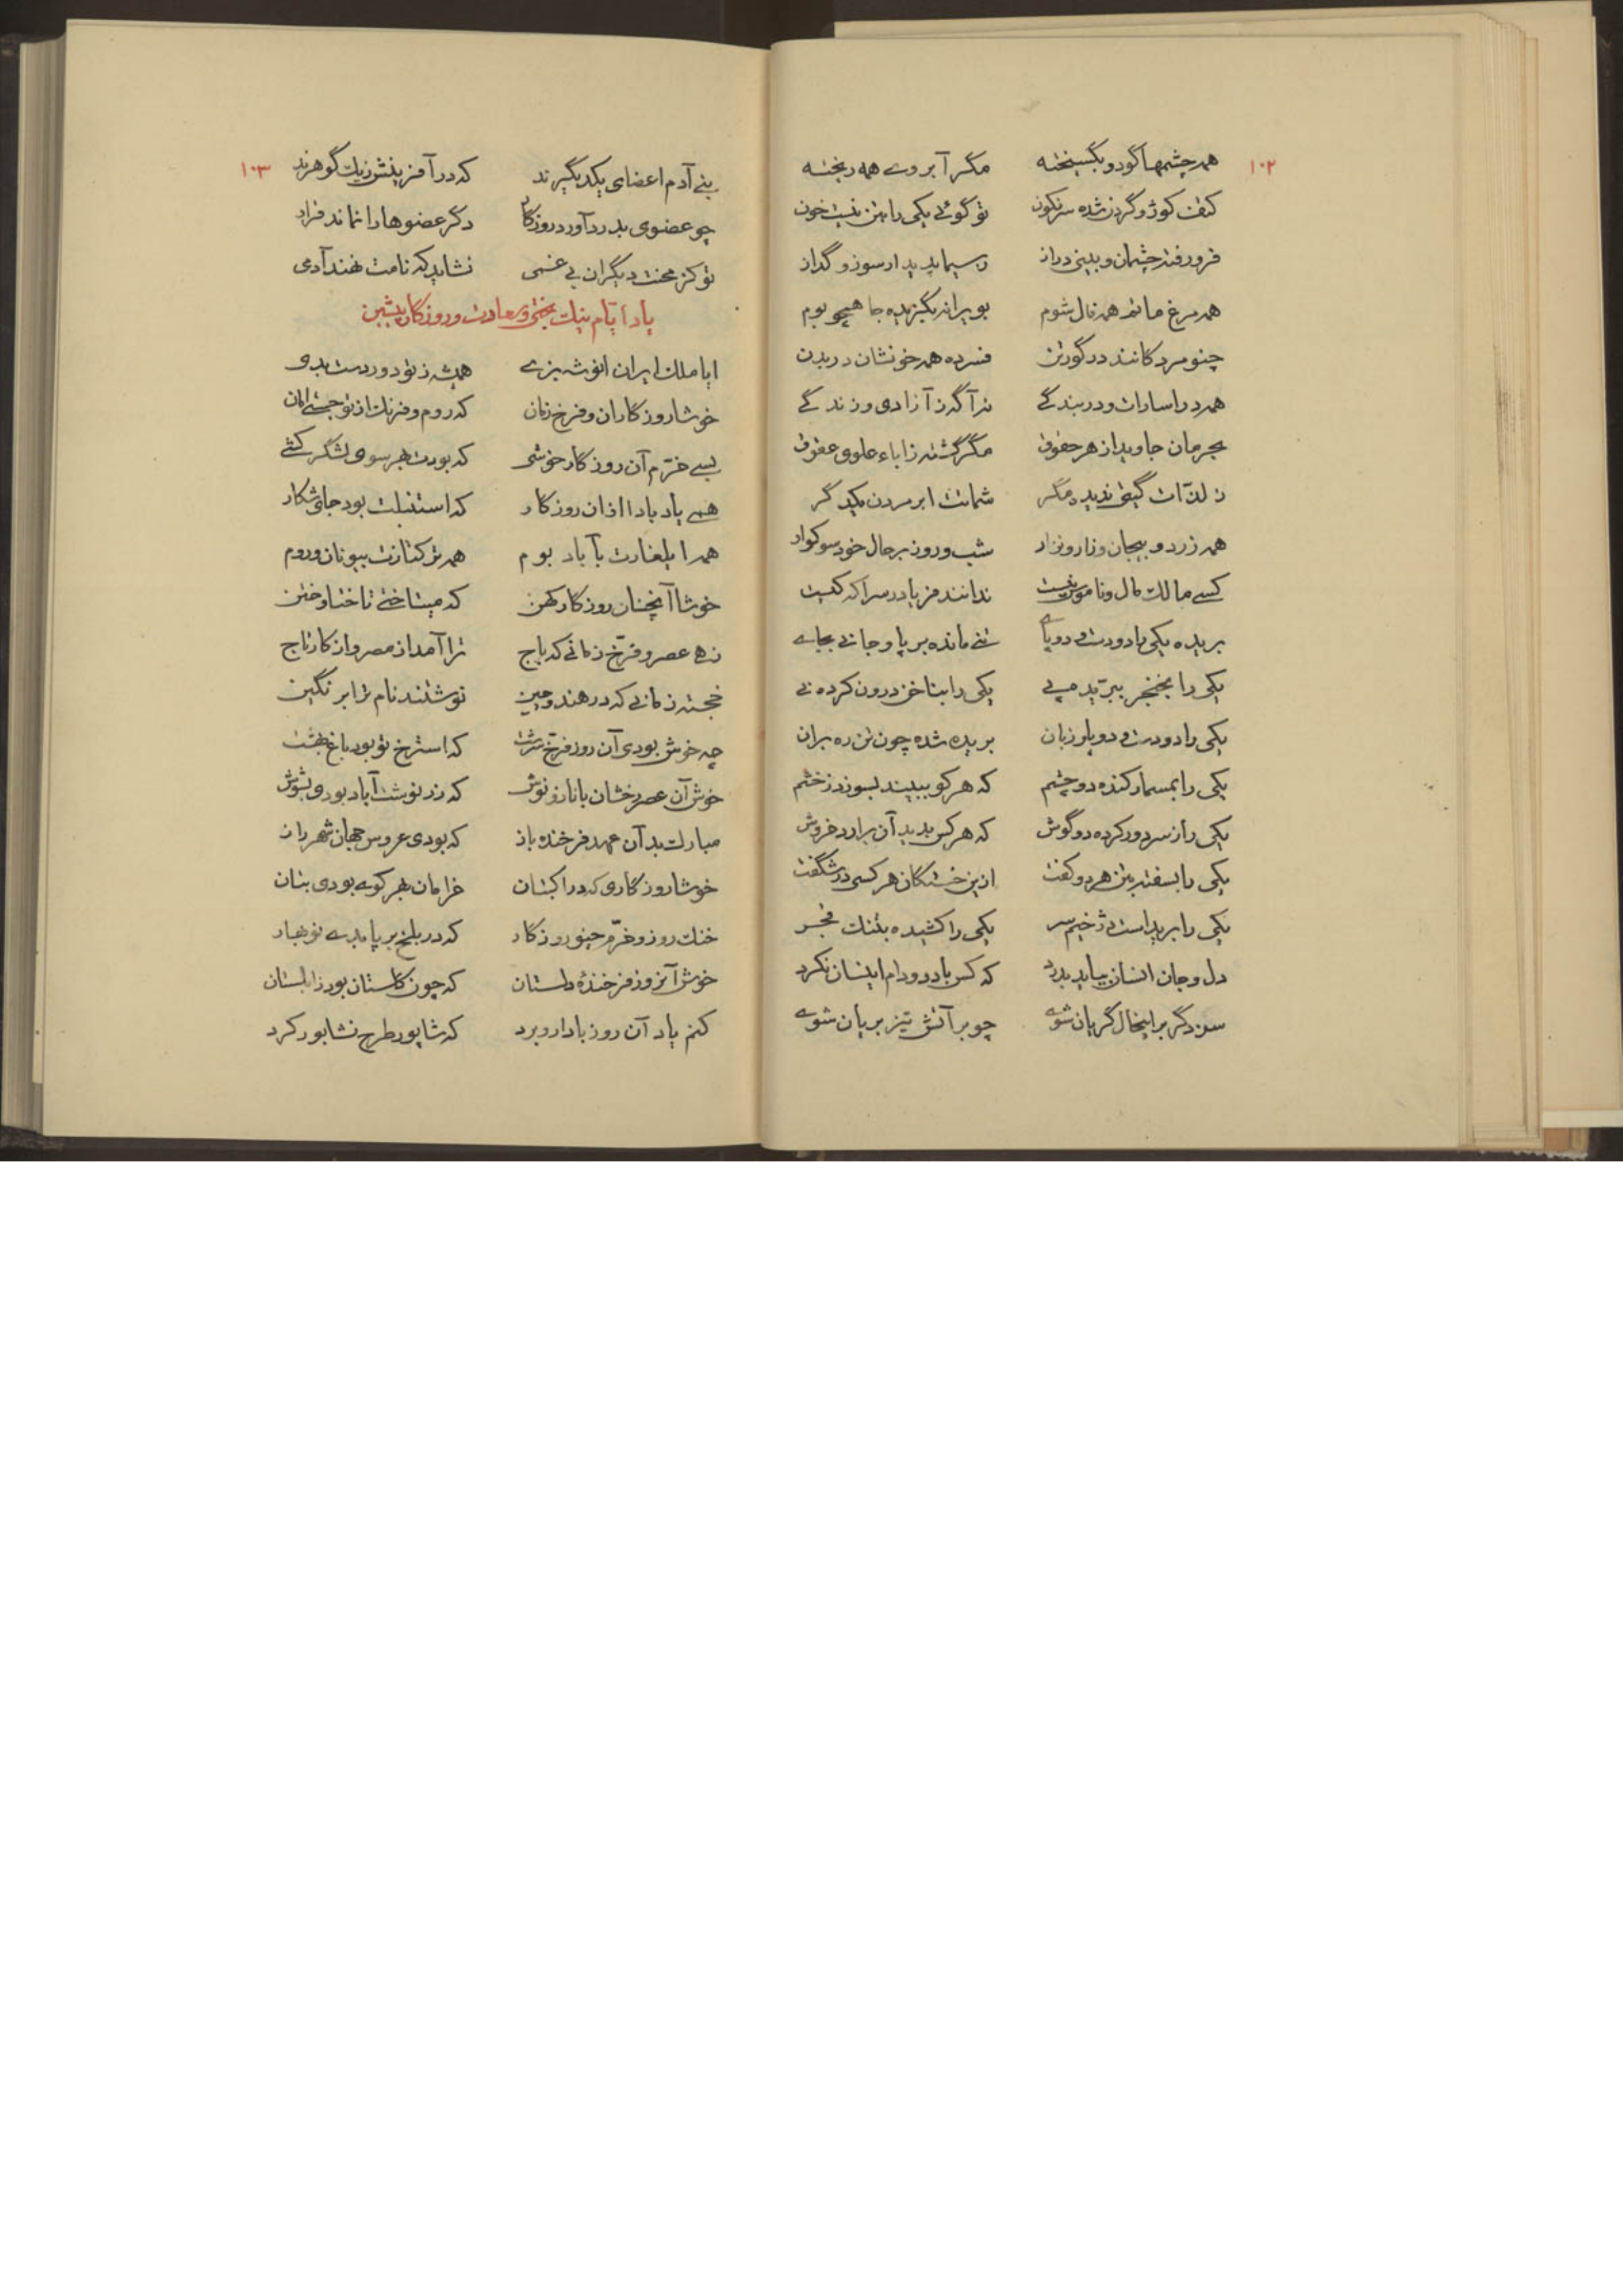 ۱۰۲
همه چشمها گود و بگسیخته مگر آبروے همه ریخته
کتف کوژ و گردن شده سرنگون تو گوئے یکی را بتن نیست خون
فرو رفته چشمان و بینی دراز ز سیما پدیدار سوز و گداز
همه مرغ ماتم همه فال شوم بویرانه بگزیده جا همچو بوم
چنو مرد کانند در گور تن فسرده همه خونشان در بدن
همه در اسارات و در بندگے نه آگه ز آزادی و زندگے
بحرمان جاوید از هر حقوق مگر گشته ز اباء علوی عقوق
ز لذّات گیتی ندیده مگر شماتت ابر مردن یکدگر
همه زرد و بیجان و زار و نزار شب و روز بر حال خود سوکوار
کسے مالک مال و ناموس نیست ندانند فریادرس را که کیست
بریده یکی را دو دست و دو پاے تنے مانده بر پا و جانے بجاے
یکی را بخنجر ببرّید پے یکی را بناخن درون کرده نے
یکی را دو دست و دو پا و زبان بریده شده چون تن ره بران
یکی را بمسمار کنده دو چشم که هر کو ببیند بسوزد ز خشم
یکی را ز سر دور کرده دو گوش که هر کس بدید آن برارد خروش
یکی را بسفته بتن هر دو کفت ازین خستگان هر کسی در شگفت
یکی را کشیده بتنگ
دل و جان انسان بیاید بدرد که کس با دد و دام اینسان نکرد
سزد گر بر اینحال گریان شوے چو بر آتش تیز بریان شوے
۱۰۳
بنے آدم اعضای یکدیگرند که در آفرینش ز یک گوهرند
چو عضوی بدرد آورد روزگار دگر عضوها را نماند قرار
تو کز محنت دیگران بے غمی نشاید که نامت نهند آدمی
یاد ایّام نیک بختی و سعادت و روزکار پیشین
ایا ملک ایران انوشه بزے همیشه ز تو دور دست بدی
خوشا روزگاران و فرخ زمان که روم و فرنگ از تو جستے امان
بسے خرّم آن روزکار خوشی که بودت بهر سوی لشگر کشے
همے یاد باد ااز ان روزکار که استنبلت بود جای شکار
همه ایلغارت بآباد بوم همه ترکتازت بیونان و روم
خوشا آنچنان روزکار کهن که میتاختے تا ختا و ختن
زهے عصر و فرّخ زمانے که باج ترا آمد از مصر و از کارتاج
خجسته زمانے که در هند و چین نوشتند نام ترا بر نگین
چه خوش بودی آن روز فرّخ سرشت که استرخ تو بود باغ بهشت
خوش آن عصر رخشان با ناز و نوش که زرنوشت آباد بودی بشوش
مبارک بد آن عهد فرخنده باز که بودی عروس جهان شهر راز
خوشا روزگاری که در اکبتان خرامان بهر کوے بودی بتان
خنک روز و خرّم چنو روزکار که در بلخ بر پا بدے نوبهار
خوش آنروز فرخندهٔ دلستان که چون گلستان بود زابلستان
کنم یاد آن روز با دار و برد که شاپور طرح نشابور کرد